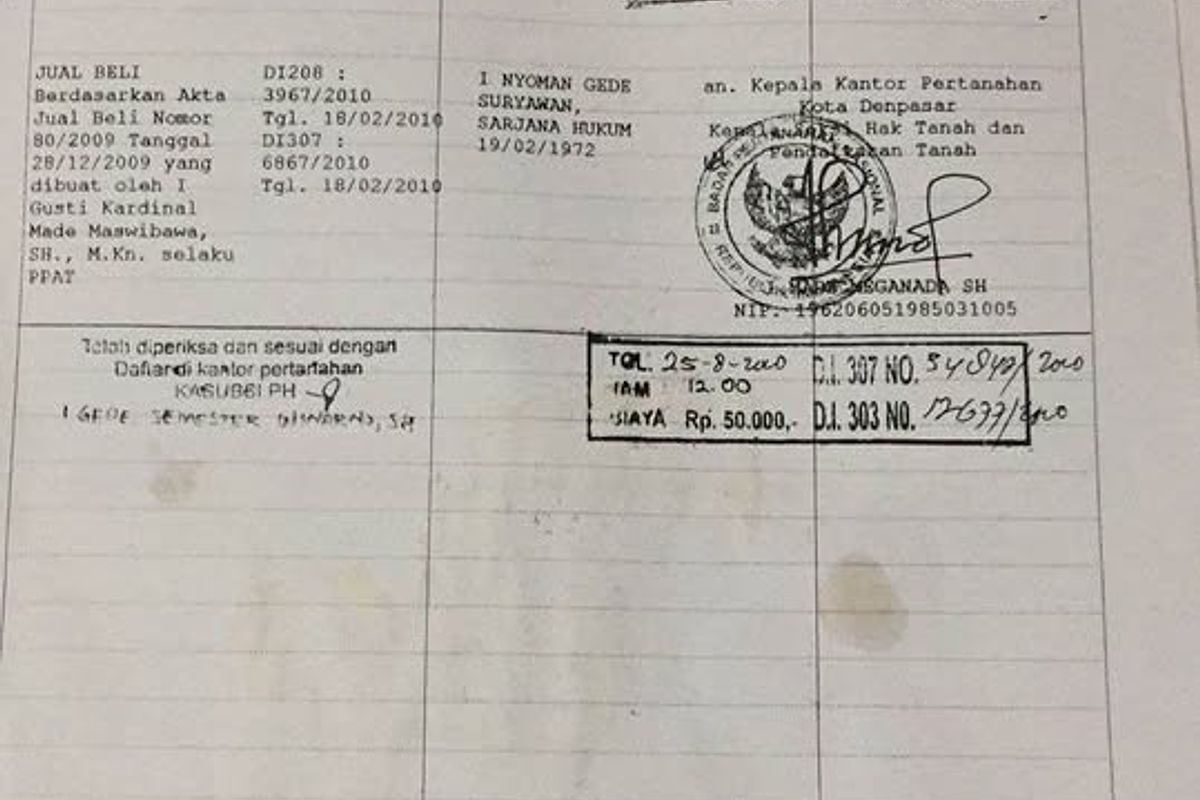 JUAL BELI
Berdasarkan Akta
Jual Beli Nomor
80/2009 Tanggal
28/12/2009 yang
dibuat oleh I
Gusti Kardinal
Made Maswibawa,
SH., M.Kn. selaku
PPAT
DI208 :
3967/2010
Tgl. 18/02/2010
DI307 :
6867/2010
Tgl. 18/02/2010
I NYOMAN GEDE
SURYAWAN,
SARJANA HUKUM
19/02/1972
an. Kepala Kantor Pertanahan
Kota Denpasar
Hak Tanah dan
Pendaftaran Tanah
BADAN
NASIONAL
REPUBLIK
MEGANADA SH
NIP. 196206051985031005
Telah diperiksa dan sesuai dengan
Daftar di kantor pertanahan
KASUBSI PH
I GEDE SEMESTER SH
TGL. 25-8-2010
JAM 12.00
BIAYA Rp. 50.000,-
D.I. 307 NO.
D.I. 303 NO.